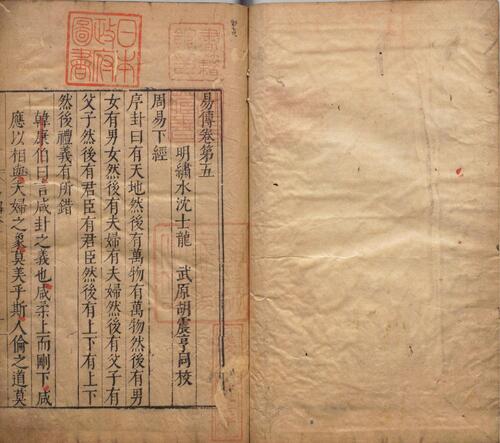 日本
政府
圖書
書籍
易傳卷第五
明繡水沈士龍 武原胡震亨同校
周易下經
序卦曰有天地然後有萬物有萬物然後有男
女有男女然後有夫婦有夫婦然後有父子有
父子然後有君臣有君臣然後有上下有上下
然後禮義有所錯
韓康伯曰言咸卦之義也咸柔上而剛下感
應以相與夫婦之象莫美乎斯人倫之道莫